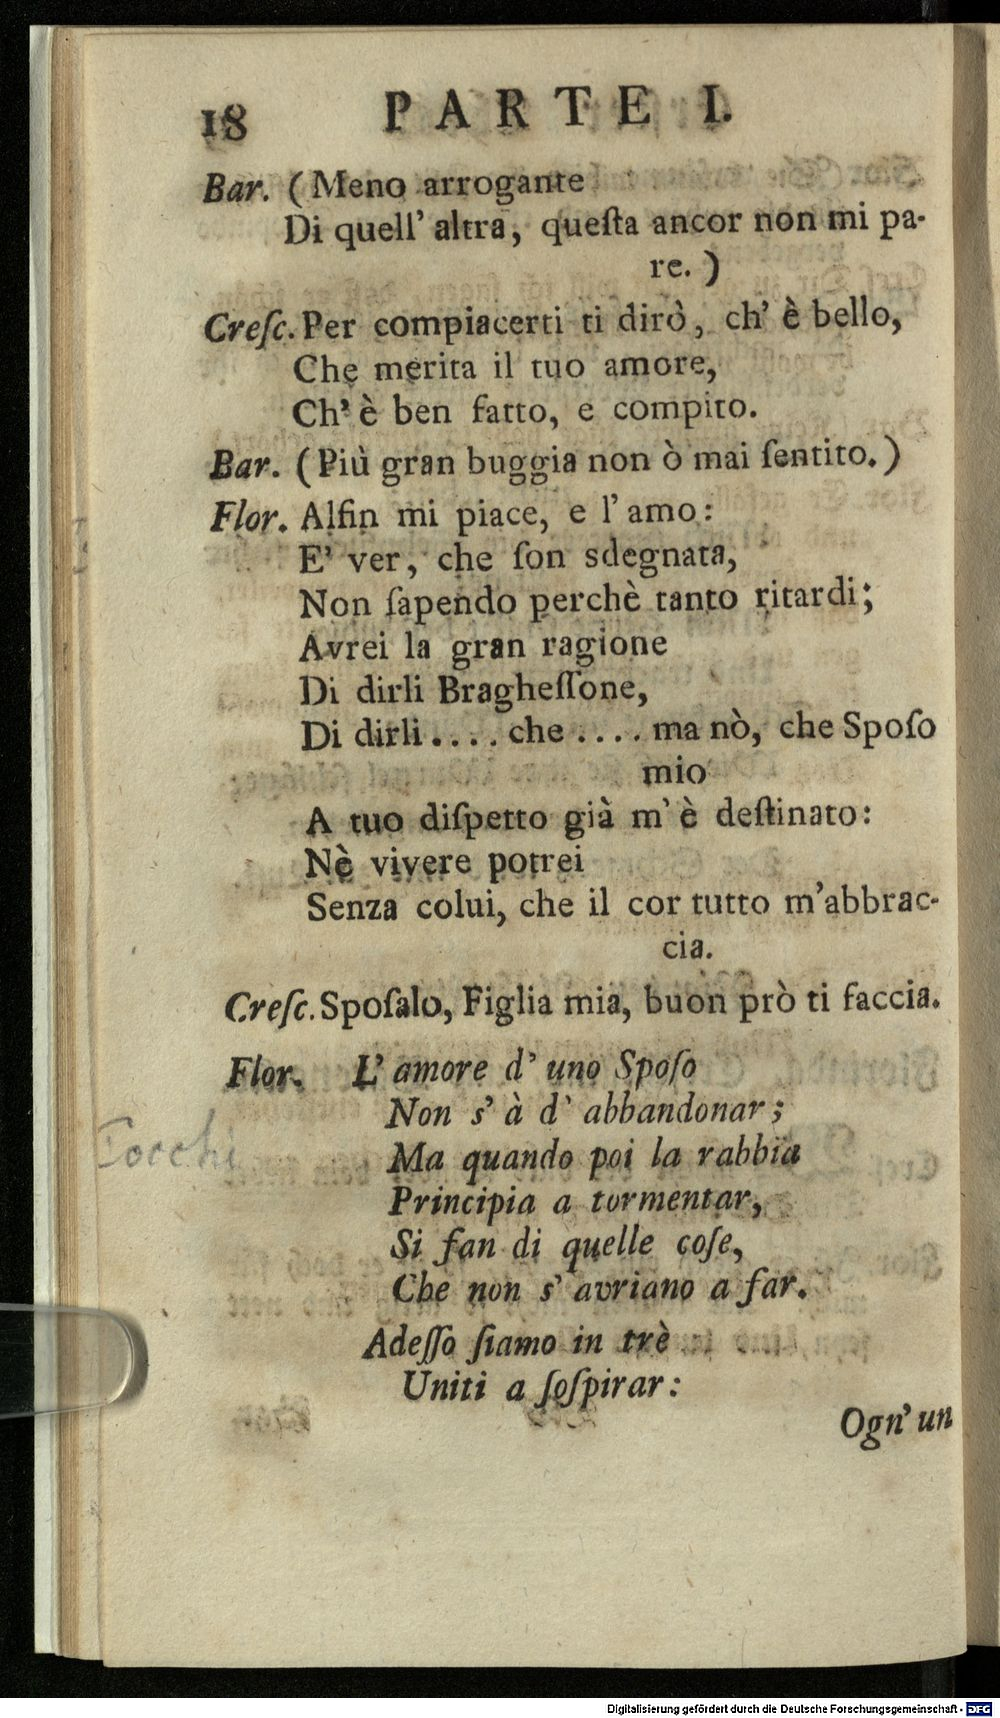 18 PARTE I.
Bar. (Meno arrogante
Di quell' altra, queſta ancor non mi pa-
re. )
Creſc. Per compiacerti ti dirò, ch' è bello,
Che merita il tuo amore,
Ch' è ben fatto, e compito.
Bar. (Più gran buggia non ò mai ſentito.)
Flor. Alfin mi piace, e l' amo:
E' ver, che ſon sdegnata,
Non ſapendo perchè tanto ritardi;
Avrei la gran ragione
Di dirli Bragheſſone,
Di dirli .... che .... ma nò, che Spoſo
mio
A tuo diſpetto già m' è deſtinato:
Nè vivere potrei
Senza colui, che il cor tutto m'abbrac-
cia.
Creſc. Spoſalo, Figlia mia, buon prò ti faccia.
Flor. L' amore d' uno Spoſo
Non s' à d' abbandonar;
Tocchi
Ma quando poi la rabbia
Principia a tormentar,
Si fan di quelle coſe,
Che non s' avriano a far.
Adeſſo ſiamo in trè
Uniti a ſoſpirar:
Ogn' un
Digitalisierung gefördert durch die Deutsche Forschungsgemeinschaft - DFG